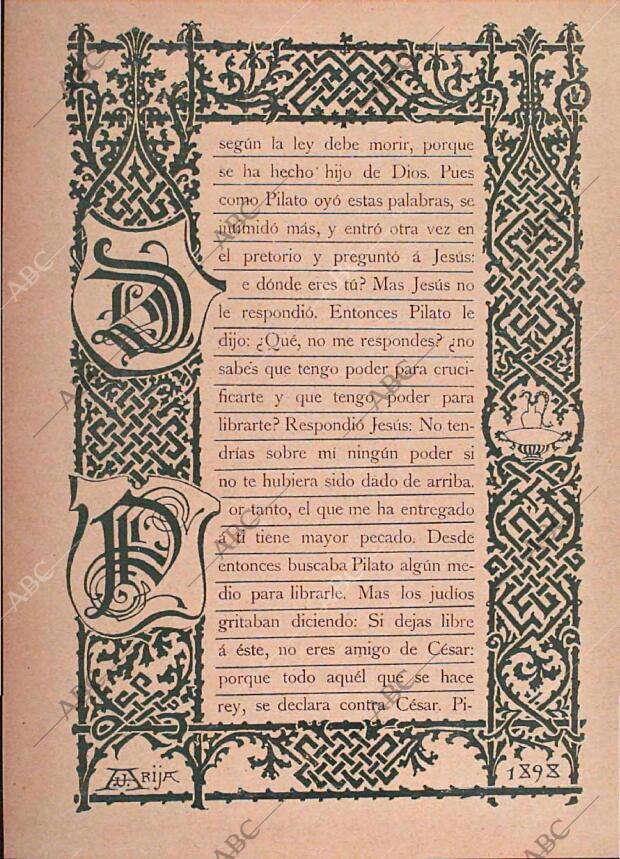 según la ley debe morir, porque
se ha hecho hijo de Dios. Pues
como Pilato oyó estas palabras, se
intimidó más, y entró otra vez en
el pretorio y preguntó á Jesús:
D e dónde eres tú? Mas Jesús no
le respondió. Entonces Pilato le
dijo: ¿Qué, no me respondes? ¿no
sabes que tengo poder para cruci-
ficarte y que tengo poder para
librarte? Respondió Jesús: No ten-
drías sobre mí ningún poder si
no te hubiera sido dado de arriba.
P or tanto, el que me ha entregado
á ti tiene mayor pecado. Desde
entonces buscaba Pilato algún me-
dio para librarle. Mas los judíos
gritaban diciendo: Si dejas libre
á éste, no eres amigo de César:
porque todo aquél que se hace
rey, se declara contra César. Pi-
ARIJA
1898
ABC
ABC
ABC
ABC
ABC
ABC
ABC
ABC
ABC
ABC
ABC
ABC
ABC